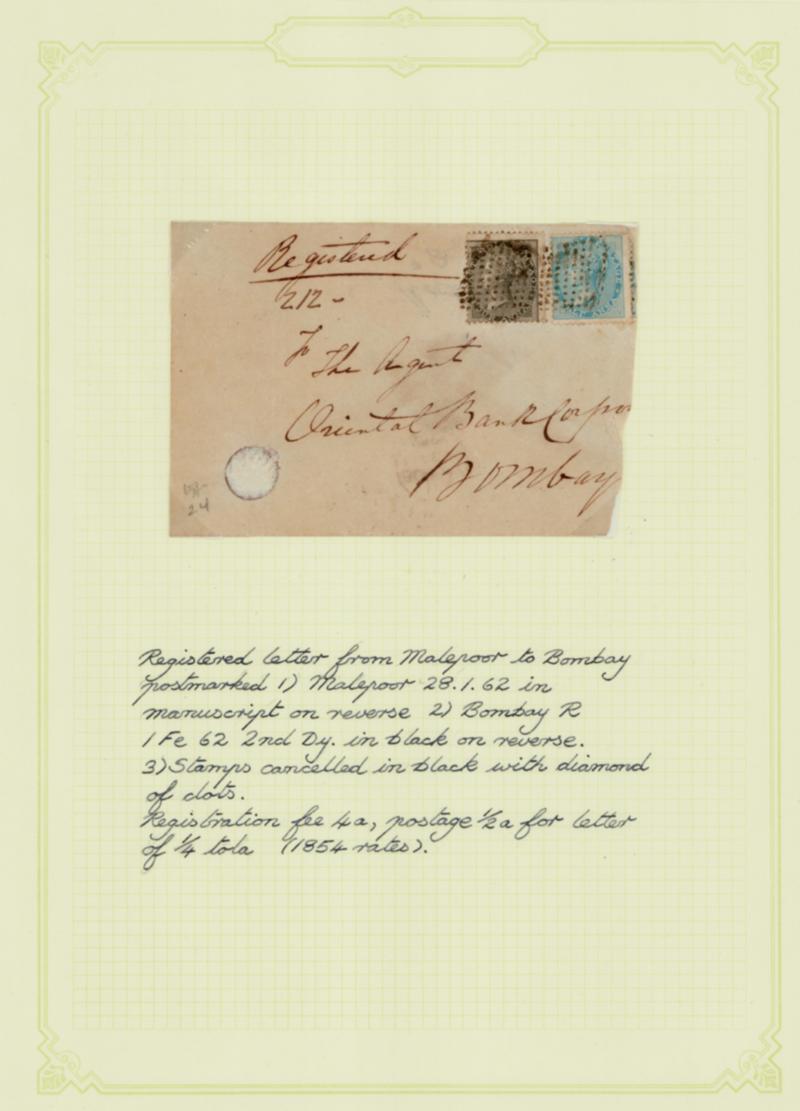 Registered
212 -
To The Agent
Oriental Bank Corpor
Bombay
24
Registered letter from Malepoor to Bombay
postmarked 1) Malepoor 28.1.62 in
manuscript on reverse 2) Bombay R
1 Fe 62 2nd Dy. in black on reverse.
3) Stamps cancelled in black with diamond
of dots.
Registration fee 4a, postage ½a for letter
of ¼ tola (1854 rates).